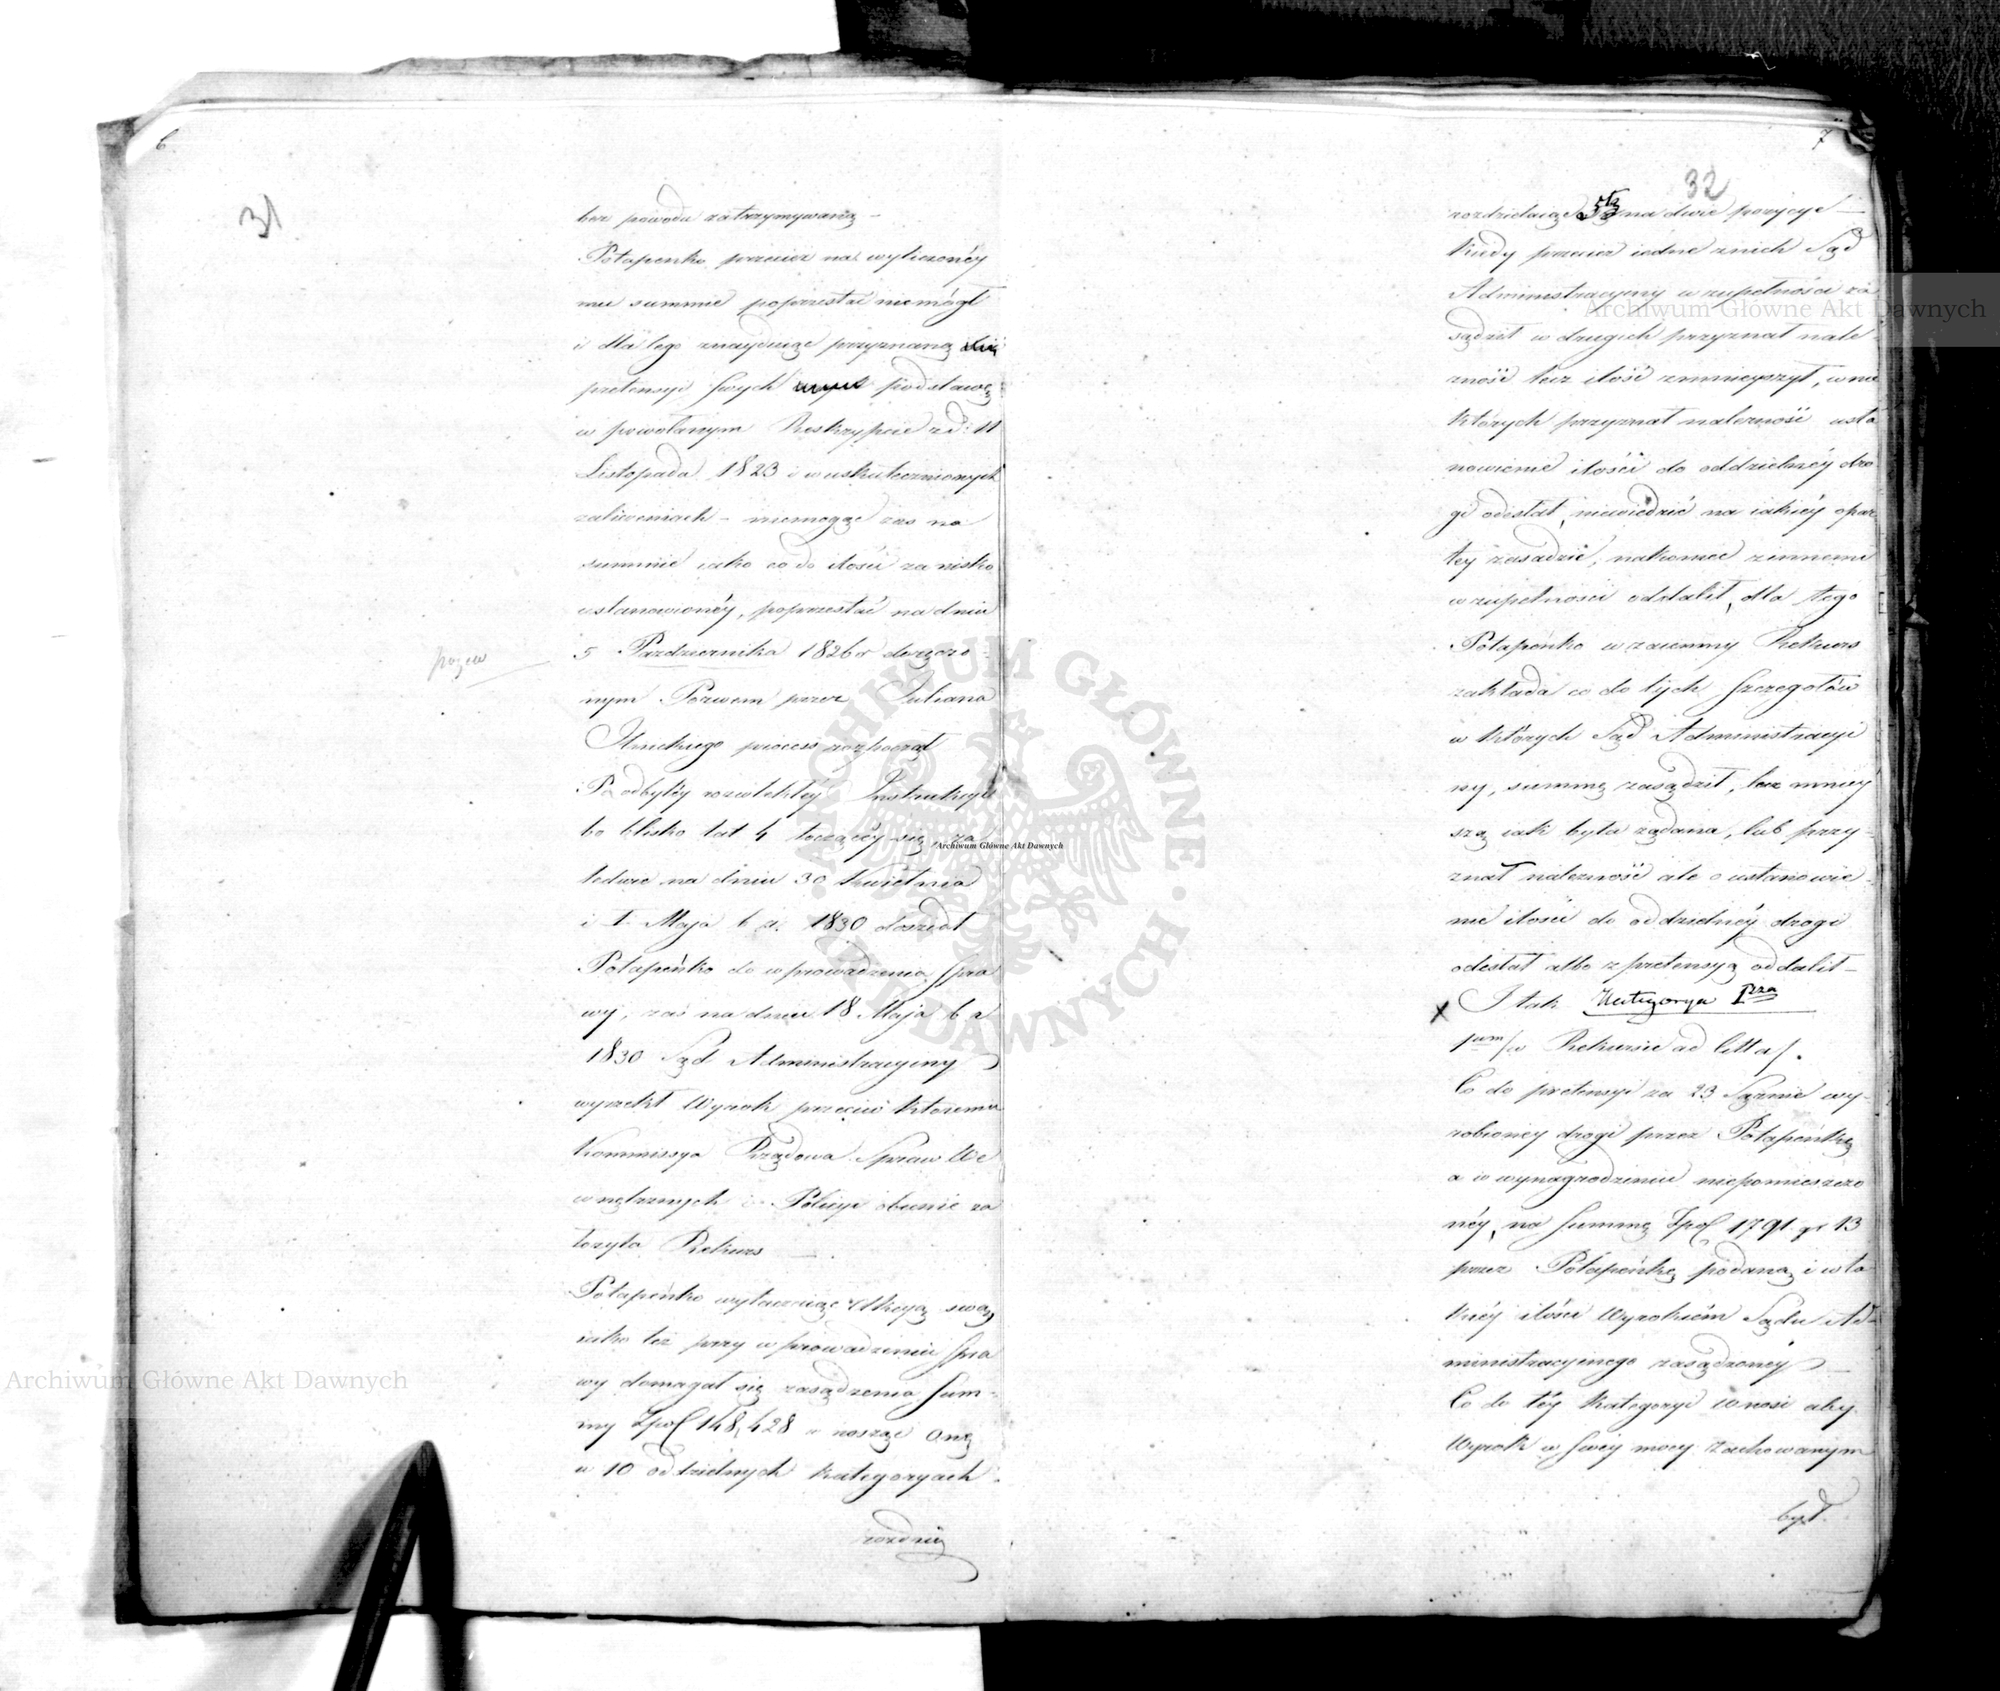 6
31
bez powodu zatrzymywaną –
Potapenko przecież na wyliczonéy
mu summie poprzestać niemógł
i dla tego znayduiąc przyznaną
pretensyi swych podstawę
w powołanym Reskrypcie z d: 11
Listopada 1823 i w uskutecznionych
zaliczeniach – niemogąc zas na
summie iako co do ilości za nisko
ustanowionéy, poprzestać na dniu
pozew
5 Pazdziernika 1826 r doręczo-
nym Pozwem przez Juliana
process rozpoczął
Po odbytéy rozwlekłey Instrukcyi
bo blisko lat 4 toczącéy się, za
ledwie na dniu 30 Kwietnia
i 1 Maja b r. 1830 doszedł
Potapeńko do wprowadzenia Spra
wy, zaś na dniu 18 Maja b r
1830 Sąd Administracyiny
wyrzekł Wyrok przeciw któremu
Kommissya Rządowa Spraw We
wnętrznych i Policyi obecnie za
łożyła Rekurs —
Potapeńko wytaczaiąc Akcyą swą
iako też przy wprowadzeniu Spra
wy domagał się zasądzenia Sum-
my Zpol 148,428 wnosząc Onę
w 10 oddzielnych kategoryach
rozdzie
7
32
rozdzielaiąc 5tą na dwie pozycye —
Kiedy przecież iedne z nich Sąd
Administracyiny w zupełności za
sądził w drugich przyznał nale-
zność lecz ilość zmnieyszył, w nie
których przyznał należność usta
nowienie ilości do oddzielnéy dro
gi odesłał, niewiedzieć na iakiéy opar
tey zasadzie, nakoniec z innemi
w zupełności oddalił, dla tego
Potapeńko wzaiemny Rekurs
zakłada co do tych Szczegółów
w których Sąd Administracyi
ny, summę zasądził, lecz mniéy
szą iak była ządana, lub przy-
znał należność ale o ustanowie-
nie ilości do oddzielnéy drogi
odesłał albo z pretensyą oddalił –
x I tak Kategorya Isza
1um /w Rekursie ad litt a/.
Co do pretensyi za 23 Sążnie wy-
robioney drogi przez Potapeńkę
a w wynagrodzeniu niepomieszczo
néy, na Summę Zpol 1791 gr 13
przez Potapeńkę podaną i w ta
kiéy ilości Wyrokiem Sądu Ad-
ministracyinego zasądzonéy —
Co do téy Kategoryi wnosi aby
Wyrok w swéy mocy zachowanym
był.
Archiwum Główne Akt Dawnych
Archiwum Główne Akt Dawnych
Archiwum Główne Akt Dawnych
ARCHIWUM GŁÓWNE · AKT DAWNYCH ·